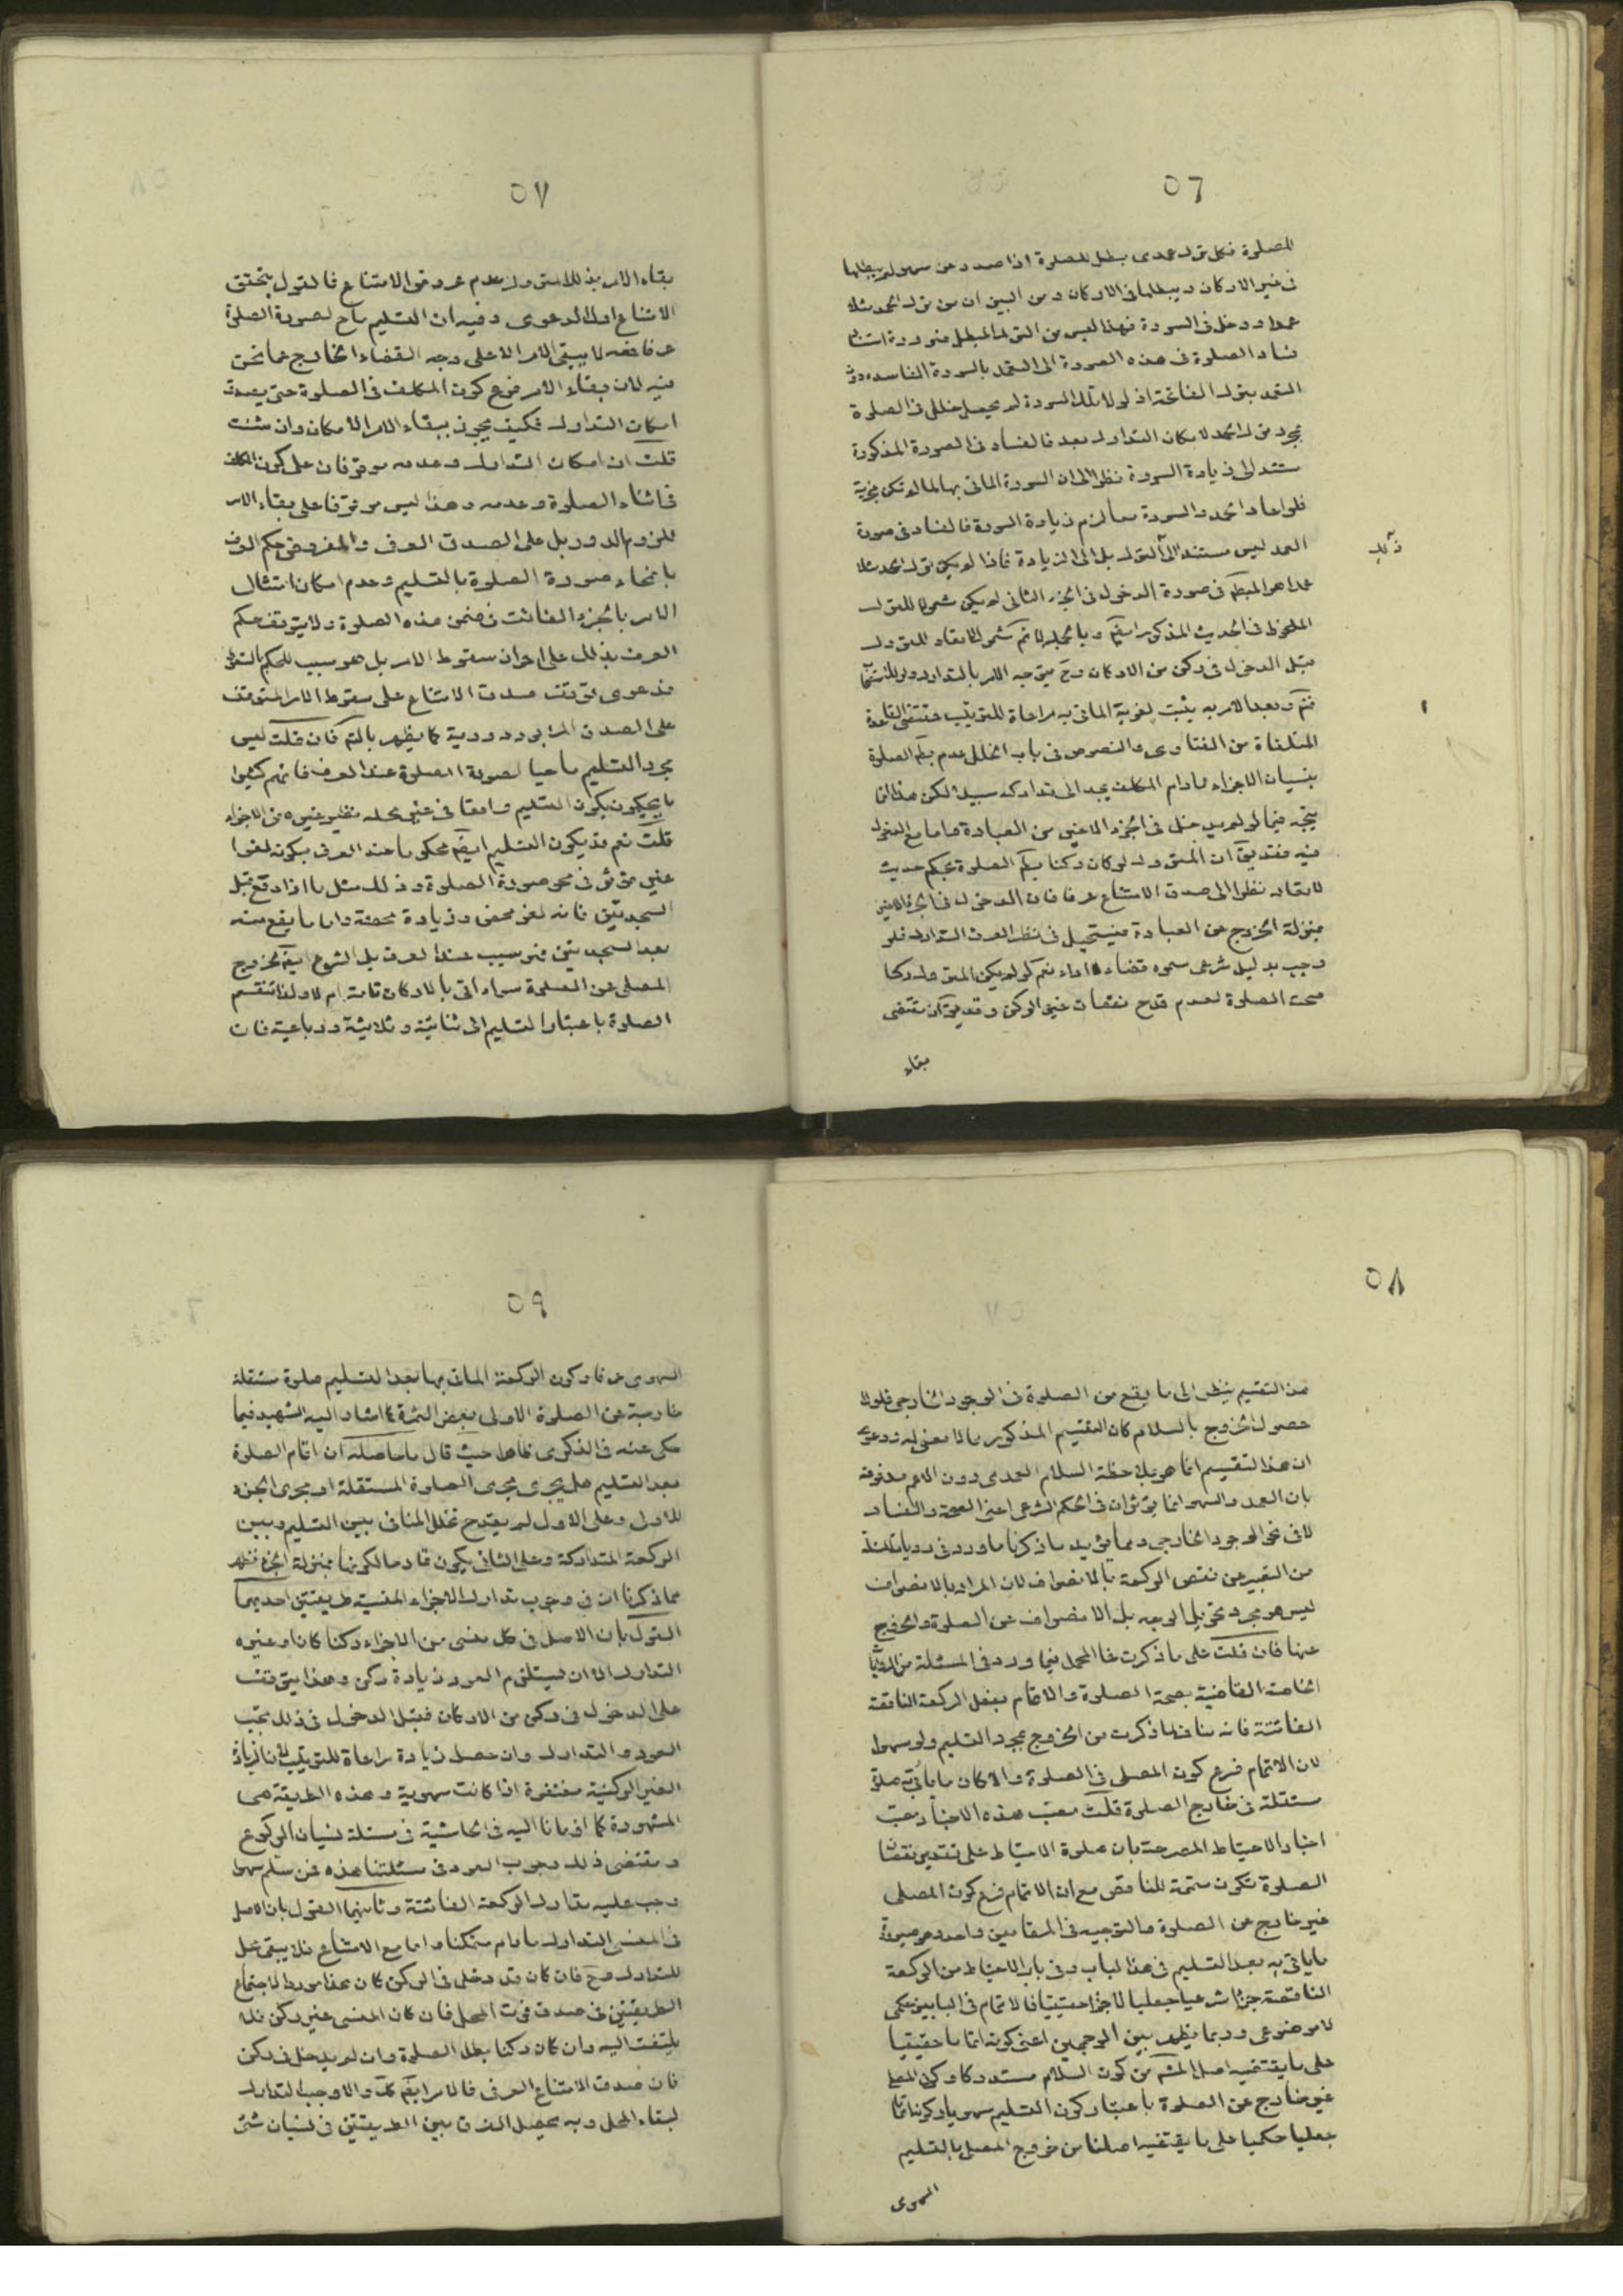 ٥٦
للصلوة فكل ترك عمدى يبطل للصلوة اذا صدر عن سهو لم يبطلها
فى غير الاركان ويبطلها فى الاركان ومن البين ان من ترك الحمد مثلا
عمدا ودخل فى السورة فهذا ليس من الترك المبطل ضرورة استناد
فساد الصلوة فى هذه الصورة الى التعمد بالسورة الفاسدة دون
التعمد بترك الفاتحة اذ لولا تلك السورة لم يحصل خلل فى الصلوة
بمجرد ترك الحمد لامكان التدارك بعد فالفساد فى الصورة المذكورة
مستند الى زيادة السورة نظرا الى ان السورة الماتى بها لما لم تكن مجزية
فلو اعاد الحمد والسورة معا لزم زيادة السورة فالفساد فى صورة
العمد ليس مستندا الى الترك بل الى الزيادة فاذا لم يكن ترك الحمد مثلا
عمدا هو المبطل فى صورة الدخول فى الجزء الثانى لم يكن مشمولا للترك
الملحوظ فى الحديث المذكور ايضا وبالجملة لا نم شمول لاتعاد للترك
قبل الدخول فى ركن من الاركان وح يتوجه الامر بالتدارك
فتم وبعد الامر به يثبت لغوية الماتى به مراعاة للترتيب فمقتضى القاعدة
المتلقاة من الفتاوى والنصوص فى باب الخلل عدم بطلان الصلوة
بنسيان الاجزاء مادام المكلف يجد الى تداركه سبيلا لكن هذا انما
يتجه فيما لو لم يدخل فى الجزء الاخير من العبادة واما مع الدخول
فيه فقد يق ان المتروك لو كان ركنا بطل الصلوة بحكم حديث
لاتعاد نظرا الى صدق الامتناع عرفا فان الدخول فى الجزء الاخير
بمنزلة الخروج عن العبادة فيستحيل فى نظر العرف التدارك فلو
وجب بدليل شرعى سموه قضاء لا اداء نعم لو لم يكن المتروك ركنا
صحت الصلوة لعدم قدح نقصان غير الركن وقد يق ان مقتضى
بقاء
٥٧
بقاء الامر بذلك المتروك عدم عروض الامتناع فالقول بتحقق
الامتناع اول الدعوى وفيه ان التسليم ماح لصورة الصلوة
عرفا فمعه لا يبقى الامر الا على وجه القضاء الخارج عما نحن
فيه لان بقاء الامر فرع كون المكلف فى الصلوة حتى يصدق
امكان التدارك فكيف يحرز ببقاء الامر الامكان وان شئت
قلت ان امكان التدارك وعدمه موقوفان على كون المكلف
فى اثناء الصلوة وعدمه وهذا ليس موقوفا على بقاء الامر
للزوم الدور بل على الصدق العرفى والمفروض حكم العرف
بانمحاء صورة الصلوة بالتسليم وعدم امكان امتثال
الامر بالجزء الفائت فى ضمن هذه الصلوة ولا يتوقف حكم
العرف بذلك على احراز سقوط الامر بل هو سبب للحكم بالسقوط
فدعوى توقف صدق الامتناع على سقوط الامر المتوقف
على الصدق المزبور دورية كما يظهر بالتم فان قلت ليس
مجرد التسليم ماحيا لصورة الصلوة عند العرف فانهم كثيرا
ما يحكمون بكون التسليم واقعا فى غير محله نظير غيره من الاجزاء
قلت نعم قد يكون التسليم ايضا محكوما عند العرف بكونه لغوا
غير مؤثر فى محو صورة الصلوة وذلك مثل ما اذا وقع قبل
السجدتين فانه لغو محض وزيادة محضة واما ما يقع منه
بعد السجدتين فهو سبب عند العرف بل الشرع ايضا لخروج
المصلى عن الصلوة سواء اتى بالاركان تامة ام لا ولذا تنقسم
الصلوة باعتبار التسليم الى ثنائية وثلاثية ورباعية فان
٥٨
هذا التقسيم ينظر الى ما يقع من الصلوة فى الوجود الخارجى فلولا
حصول الخروج بالسلام كان التقسيم المذكور مما لا معنى له ودعوى
ان هذا التقسيم انما هو بملاحظة السلام العمدى دون الاعم مدفوعة
بان العمد والسهو انما يؤثران فى الحكم الشرعى اعنى الصحة والفساد
لا فى نحو الوجود الخارجى ومما يؤيد ما ذكرنا ما ورد فى روايات المسئلة
من التعبير عن نقص الركعة بالانصراف لان المراد بالانصراف
ليس هو مجرد تحويل الوجه بل الانصراف عن الصلوة والخروج
عنها فان قلت على ما ذكرت فما المحمل فيما ورد فى المسئلة من الروايات
الخاصة القاضية بصحة الصلوة والاتمام بفعل الركعة الناقصة
الفائتة فانه مناف لما ذكرت من الخروج بمجرد التسليم ولو سهوا
لان الاتمام فرع كون المصلى فى الصلوة والا كان ما ياتى به صلوة
مستقلة فى خارج الصلوة قلت معنى هذه الاخبار معنى
اخبار الاحتياط المصرحة بان صلوة الاحتياط على تقدير نقصان
الصلوة تكون متممة للناقص مع ان الاتمام فرع كون المصلى
غير خارج عن الصلوة والتوجيه فى المقامين واحد وهو صيرورة
ما ياتى به بعد التسليم فى هذا الباب وفى باب الاحتياط من الركعة
الناقصة جزءا شرعيا جعليا لا جزءا حقيقيا فالاتمام فى البابين حكمى
لا موضوعى وربما يظهر بين الوجهين اعنى كونه اتماما حقيقيا
على ما يقتضيه اصل المش من كون السلام مستدركا وكون المصلى
غير خارج عن الصلوة باعتبار كون التسليم سهويا وكونه اتماما
جعليا حكميا على ما يقتضيه اصلنا من خروج المصلى بالتسليم
السهوى
٥٩
السهوى عرفا وكون الركعة الماتى بها بعد التسليم صلوة مستقلة
خارجة عن الصلوة الاولى بعض الثمرة كما اشار اليه الشهيد فيما
حكى عنه فى الذكرى حيث قال ما حاصله ان اتمام الصلوة
بعد التسليم هل يجرى مجرى الصلوة المستقلة او مجرى الجزء
للاولى وعلى الاول لم يقدح تخلل المنافى بين التسليم وبين
الركعة المتداركة وعلى الثانى يكون قادحا لكونها بمنزلة الجزء فظهر
مما ذكرنا ان فى وجوب تدارك الاجزاء المنسية طريقتين احديهما
القول بان الاصل فى كل منسى من الاجزاء ركنا كان او غيره
التدارك الا ان يستلزم العود زيادة ركن وهذا يتوقف
على الدخول فى ركن من الاركان فقبل الدخول فى ذلك يجب
العود والتدارك وان حصل زيادة مراعاة للترتيب لان الزيادة
الغير الركنية مغتفرة اذا كانت سهوية وهذه الطريقة هى
المشهورة كما اومانا اليه فى الحاشية فى مسئلة نسيان الركوع
ومقتضى ذلك وجوب العود فى مسئلتنا هذه فمن سلم سهوا
وجب عليه تدارك الركعة الفائتة وثانيهما القول بان الاصل
فى المنسى التدارك مادام متمكنا واما مع الامتناع فلا يبقى محل
للتدارك وح فان كان قد دخل فى الركن كان هذا مورد الاجتماع
الطريقتين فى صدق فوت المحل فان كان المنسى غير ركن فلا
يلتفت اليه وان كان ركنا بطل الصلوة وان لم يدخل فى ركن
فان صدق الامتناع العرفى فالامر ايضا كك والا وجب التدارك
لبقاء المحل وبه يحصل الفرق بين الطريقتين فى نسيان شئ